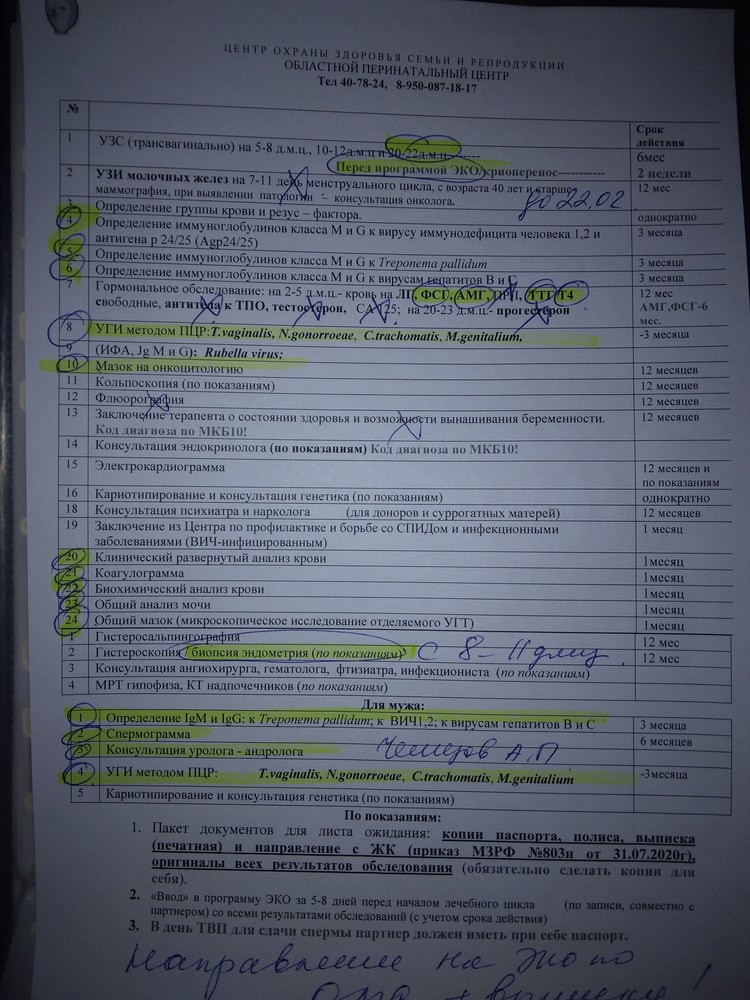 ЦЕНТР ОХРАНЫ ЗДОРОВЬЯ СЕМЬИ И РЕПРОДУКЦИИ
ОБЛАСТНОЙ ПЕРИНАТАЛЬНЫЙ ЦЕНТР
Тел 40-78-24, 8-950-087-18-17
№ Срок действия
1 УЗС (трансвагинально) на 5-8 д.м.ц., 10-12д.м.ц и 20-22д.м.ц.------- 6мес
Перед программой ЭКО/криоперенос----------- 2 недели
2 УЗИ молочных желез на 7-11 день менструального цикла, с возраста 40 лет и старше- 12 мес
маммография, при выявлении патологии - консультация онколога. до 22.02
3 Определение группы крови и резус – фактора. однократно
4 Определение иммуноглобулинов класса M и G к вирусу иммунодефицита человека 1,2 и 3 месяца
антигена p 24/25 (Agp24/25)
5 Определение иммуноглобулинов класса M и G к Treponema pallidum 3 месяца
6 Определение иммуноглобулинов класса M и G к вирусам гепатитов B и C 3 месяца
7 Гормональное обследование: на 2-5 д.м.ц.- кровь на ЛГ, ФСГ, АМГ, ПРЛ, ТТГ Т4 12 мес
свободные, антитела к ТПО, тестостерон, СА 125; на 20-23 д.м.ц.- прогестерон АМГ,ФСГ-6 мес.
8 УГИ методом ПЦР:T.vaginalis, N.gonorroeae, C.trachomatis, M.genitalium, -3месяца
9 (ИФА, Jg M и G): Rubella virus;
10 Мазок на онкоцитологию 12 месяцев
11 Кольпоскопия (по показаниям) 12 месяцев
12 Флюорография 12 месяцев
13 Заключение терапевта о состоянии здоровья и возможности вынашивания беременности. 12 месяцев
Код диагноза по МКБ10!
14 Консультация эндокринолога (по показаниям) Код диагноза по МКБ10!
15 Электрокардиограмма 12 месяцев и
по показаниям
16 Кариотипирование и консультация генетика (по показаниям) однократно
18 Консультация психиатра и нарколога (для доноров и суррогатных матерей) 12 месяцев
19 Заключение из Центра по профилактике и борьбе со СПИДом и инфекционными 1 месяц
заболеваниями (ВИЧ-инфицированным)
20 Клинический развернутый анализ крови 1месяц
21 Коагулограмма 1месяц
22 Биохимический анализ крови 1месяц
23 Общий анализ мочи 1месяц
24 Общий мазок (микроскопическое исследование отделяемого УГТ) 1месяц
1 Гистеросальпингография 12 мес
2 Гистероскопия/ биопсия эндометрия (по показаниям) с 8-11 дмц 12 мес
3 Консультация ангиохирурга, гематолога, фтизиатра, инфекциониста (по показаниям)
4 МРТ гипофиза, КТ надпочечников (по показаниям)
Для мужа:
1 Определение IgM и IgG: к Treponema pallidum; к ВИЧ1,2; к вирусам гепатитов B и C 3 месяца
2 Спермограмма 6 месяцев
3 Консультация уролога - андролога
4 УГИ методом ПЦР: T.vaginalis, N.gonorroeae, C.trachomatis, M.genitalium -3месяца
5 Кариотипирование и консультация генетика (по показаниям)
По показаниям:
1. Пакет документов для листа ожидания: копии паспорта, полиса, выписка
(печатная) и направление с ЖК (приказ МЗРФ №803н от 31.07.2020г),
оригиналы всех результатов обследования (обязательно сделать копии для
себя).
2. «Ввод» в программу ЭКО за 5-8 дней перед началом лечебного цикла (по записи, совместно с
партнером) со всеми результатами обследований (с учетом срока действия)
3. В день ТВП для сдачи спермы партнер должен иметь при себе паспорт.
Направление на ЭКО по
ОМС + выписка!